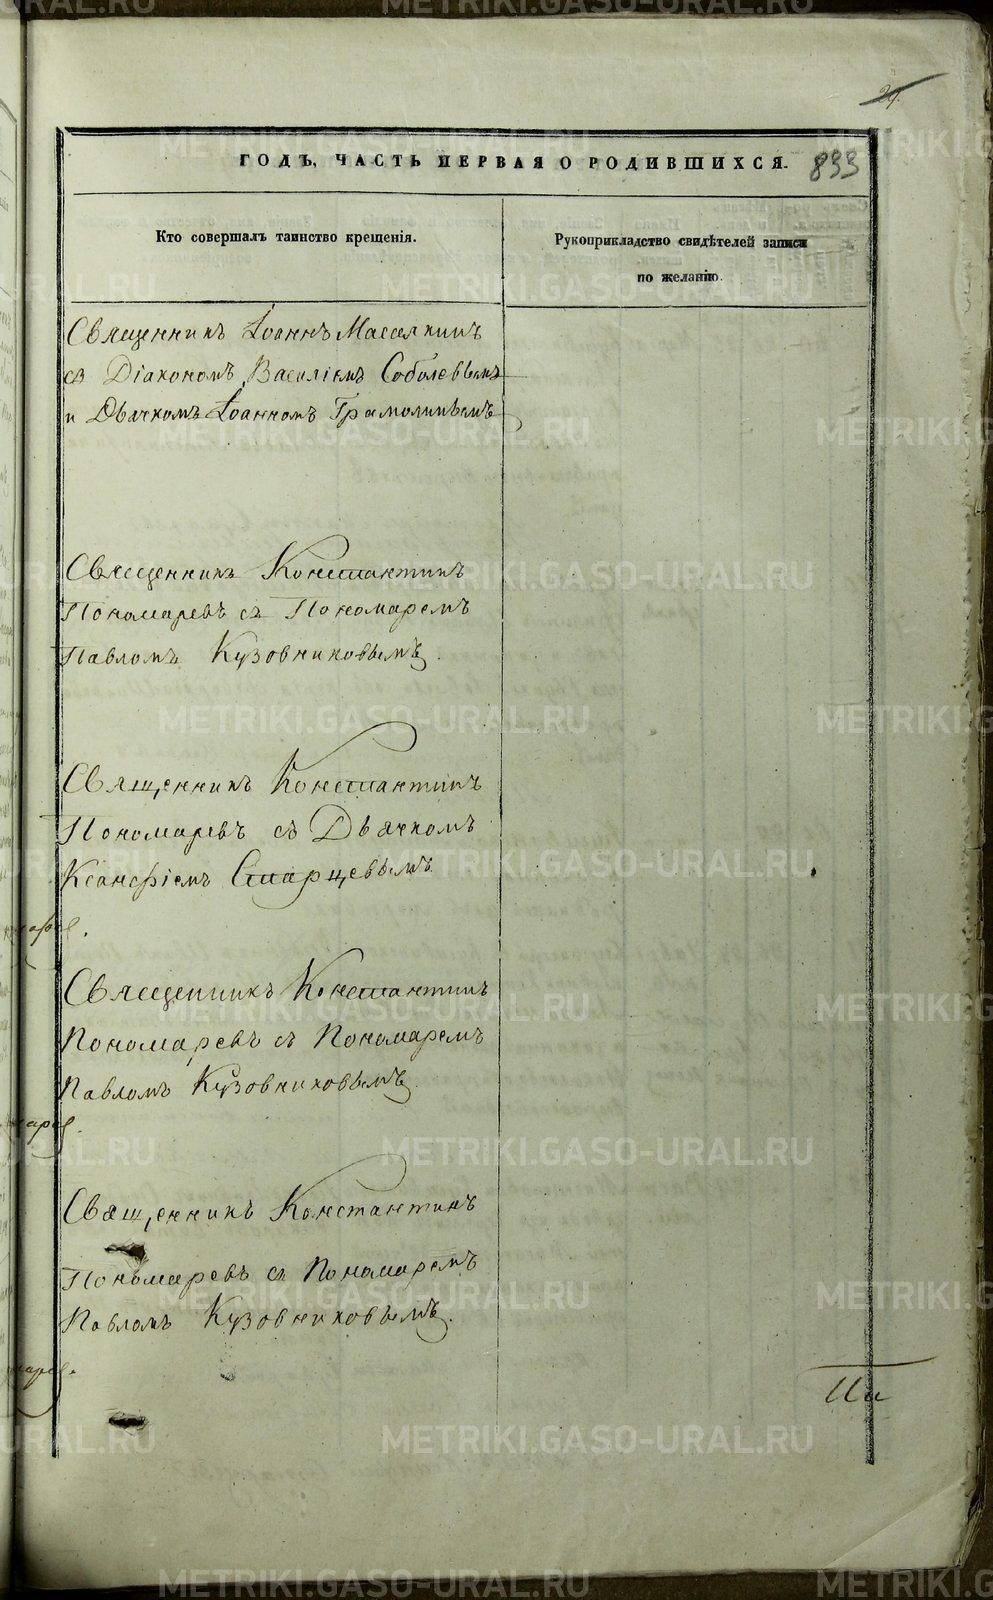 24.
ГОДЪ, ЧАСТЬ ПЕРВАЯ О РОДИВШИХСЯ. 833
Кто совершалъ таинство крещенія.
Рукоприкладство свидѣтелей записи
по желанію.
Священникъ Іоаннъ
съ Діакономъ Василіемъ Соболевымъ
и Дьячкомъ Іоанномъ
Священникъ Константинъ
Пономаревъ съ Пономаремъ
Павломъ Кузовниковымъ.
Священникъ Константинъ
Пономаревъ съ Дьячкомъ
Ксанѳіемъ Старцевымъ
Священникъ Константинъ
Пономаревъ съ Пономаремъ
Павломъ Кузовниковымъ.
Священникъ Константинъ
Пономаревъ съ Пономаремъ
Павломъ Кузовниковымъ.
METRIKI.GASO-URAL.RU